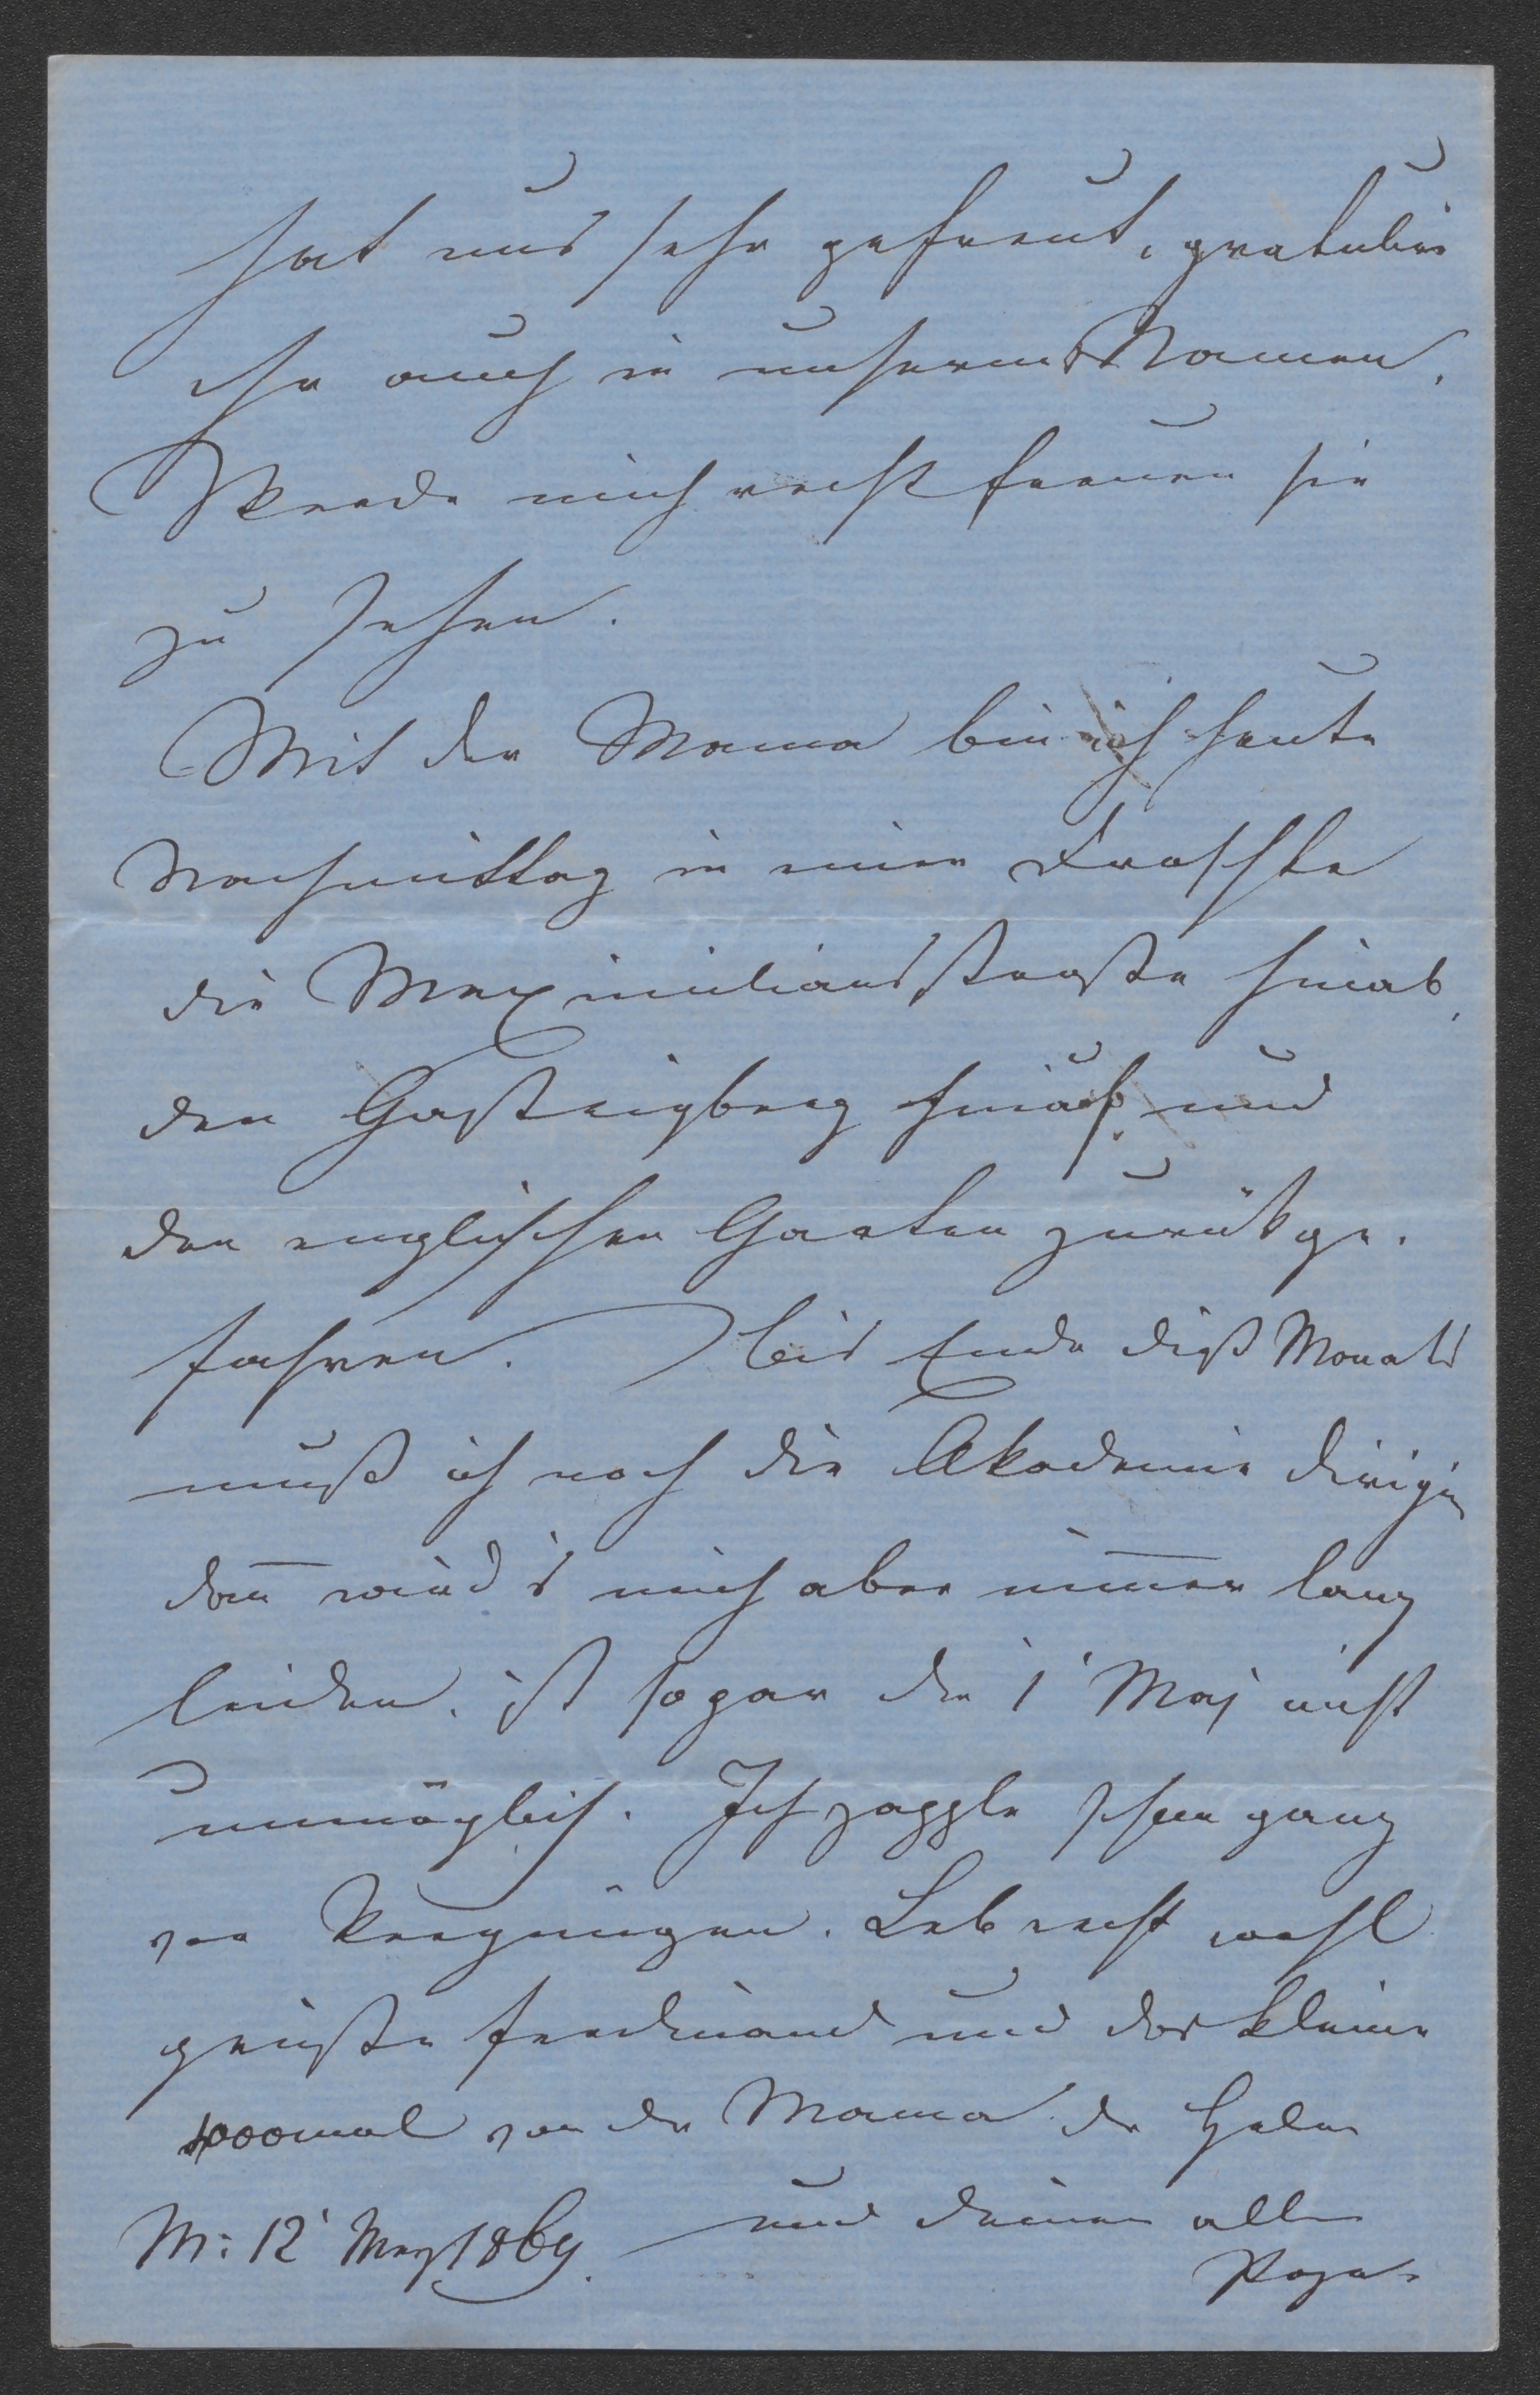 hat uns sehr gefreut, gratulire
ihr auch in unserm Namen.
Werde mich recht freuen sie
zu sehen.
Mit der Mama bin ich heute
Nachmittag in einer Droschke
die Maximiliansstraße hinab,
den Gasteigberg hinauf und
den englischen Garten zurükge-
fahren. Bis Ende diß Monats
muß ich noch die Akademie dirigi
dann wird's mich aber nimmer lang
leiden, ist sogar der 1' Maj nicht
unmöglich. Ich zapple schon ganz
vor Vergnügen. Leb recht wohl
grüße Ferdinand und das kleine
1000mal von der Mama der
und deinem alten
Papa
M: 12' 1869.